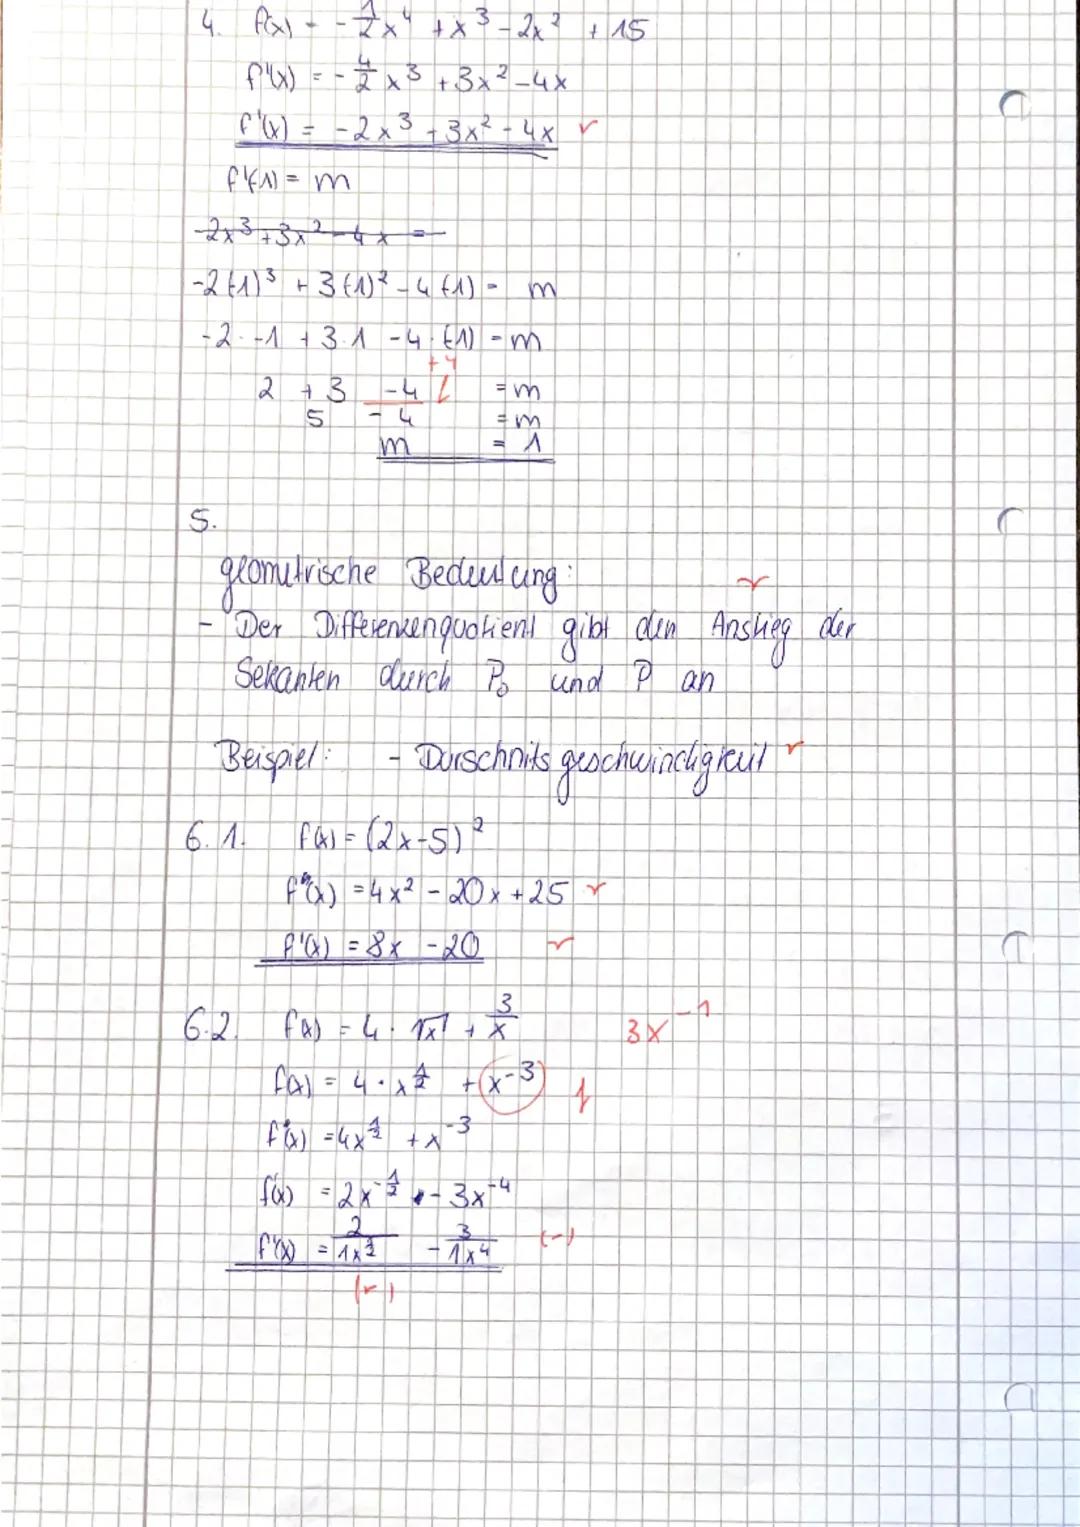 4. f(x) = -1/2x⁴ + x³ - 2x² + 15
f'(x) = -4/2x³ + 3x² - 4x
f'(x) = -2x³ + 3x² - 4x ✓
f'(-1) = m
-2x³ + 3x² - 4x =
-2(-1)³ + 3(-1)² - 4(-1) = m
-2 · -1 + 3·1 - 4·(-1) = m
+4
2 + 3 -4 = m
5 - 4 = m
m = 1
5.
geometrische Bedeutung:
- Der Differenzenquotient gibt den Anstieg der
Sekanten durch P₀ und P an
Beispiel: - Durschnitsgeschwindigkeit ✓
6.1. f(x) = (2x-5)²
f(x) = 4x² - 20x + 25 ✓
f'(x) = 8x - 20 ✓
6.2. f(x) = 4 · √x + 3/x 3x⁻¹
f(x) = 4 · x^1/2 + x⁻³ f
f(x) = 4x^1/2 + x⁻³
f'(x) = 2x^-1/2 - 3x⁻⁴
f'(x) = 2/1x^1/2 - 3/1x⁴ (-)
(✓)